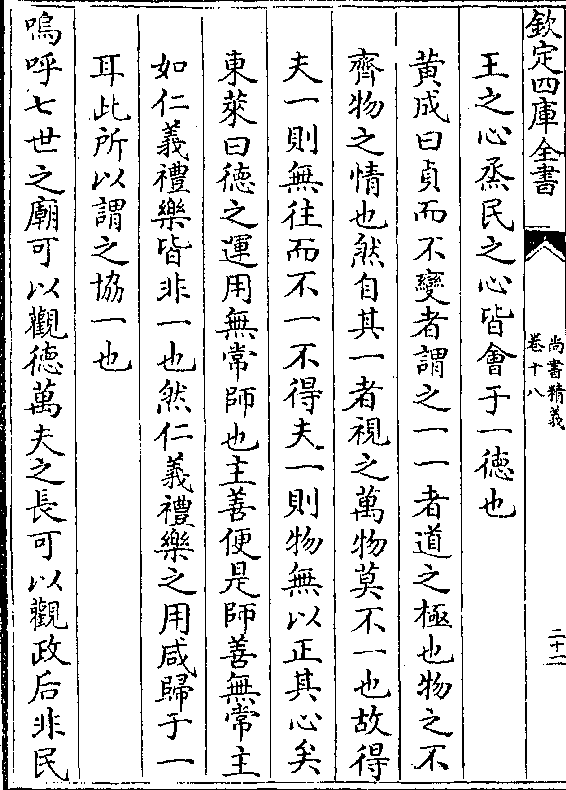 欽定四庫全書
尚書精義
卷十八
二十二
王之心烝民之心皆會于一德也
黄成曰貞而不變者謂之一一者道之極也物之不
齊物之情也然自其一者視之萬物莫不一也故得
夫一則無往而不一不得夫一則物無以正其心矣
東萊曰德之運用無常師也主善便是師善無常主
如仁義禮樂皆非一也然仁義禮樂之用咸歸于一
耳此所以謂之協一也
嗚呼七世之廟可以觀德萬夫之長可以觀政后非民